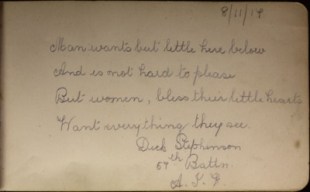 8/11/19
Man wants but little here below
And is not hard to please
But women, bless their little hearts
Want everything they see.
Dick Stephinson
57th Battn.
A. I. F